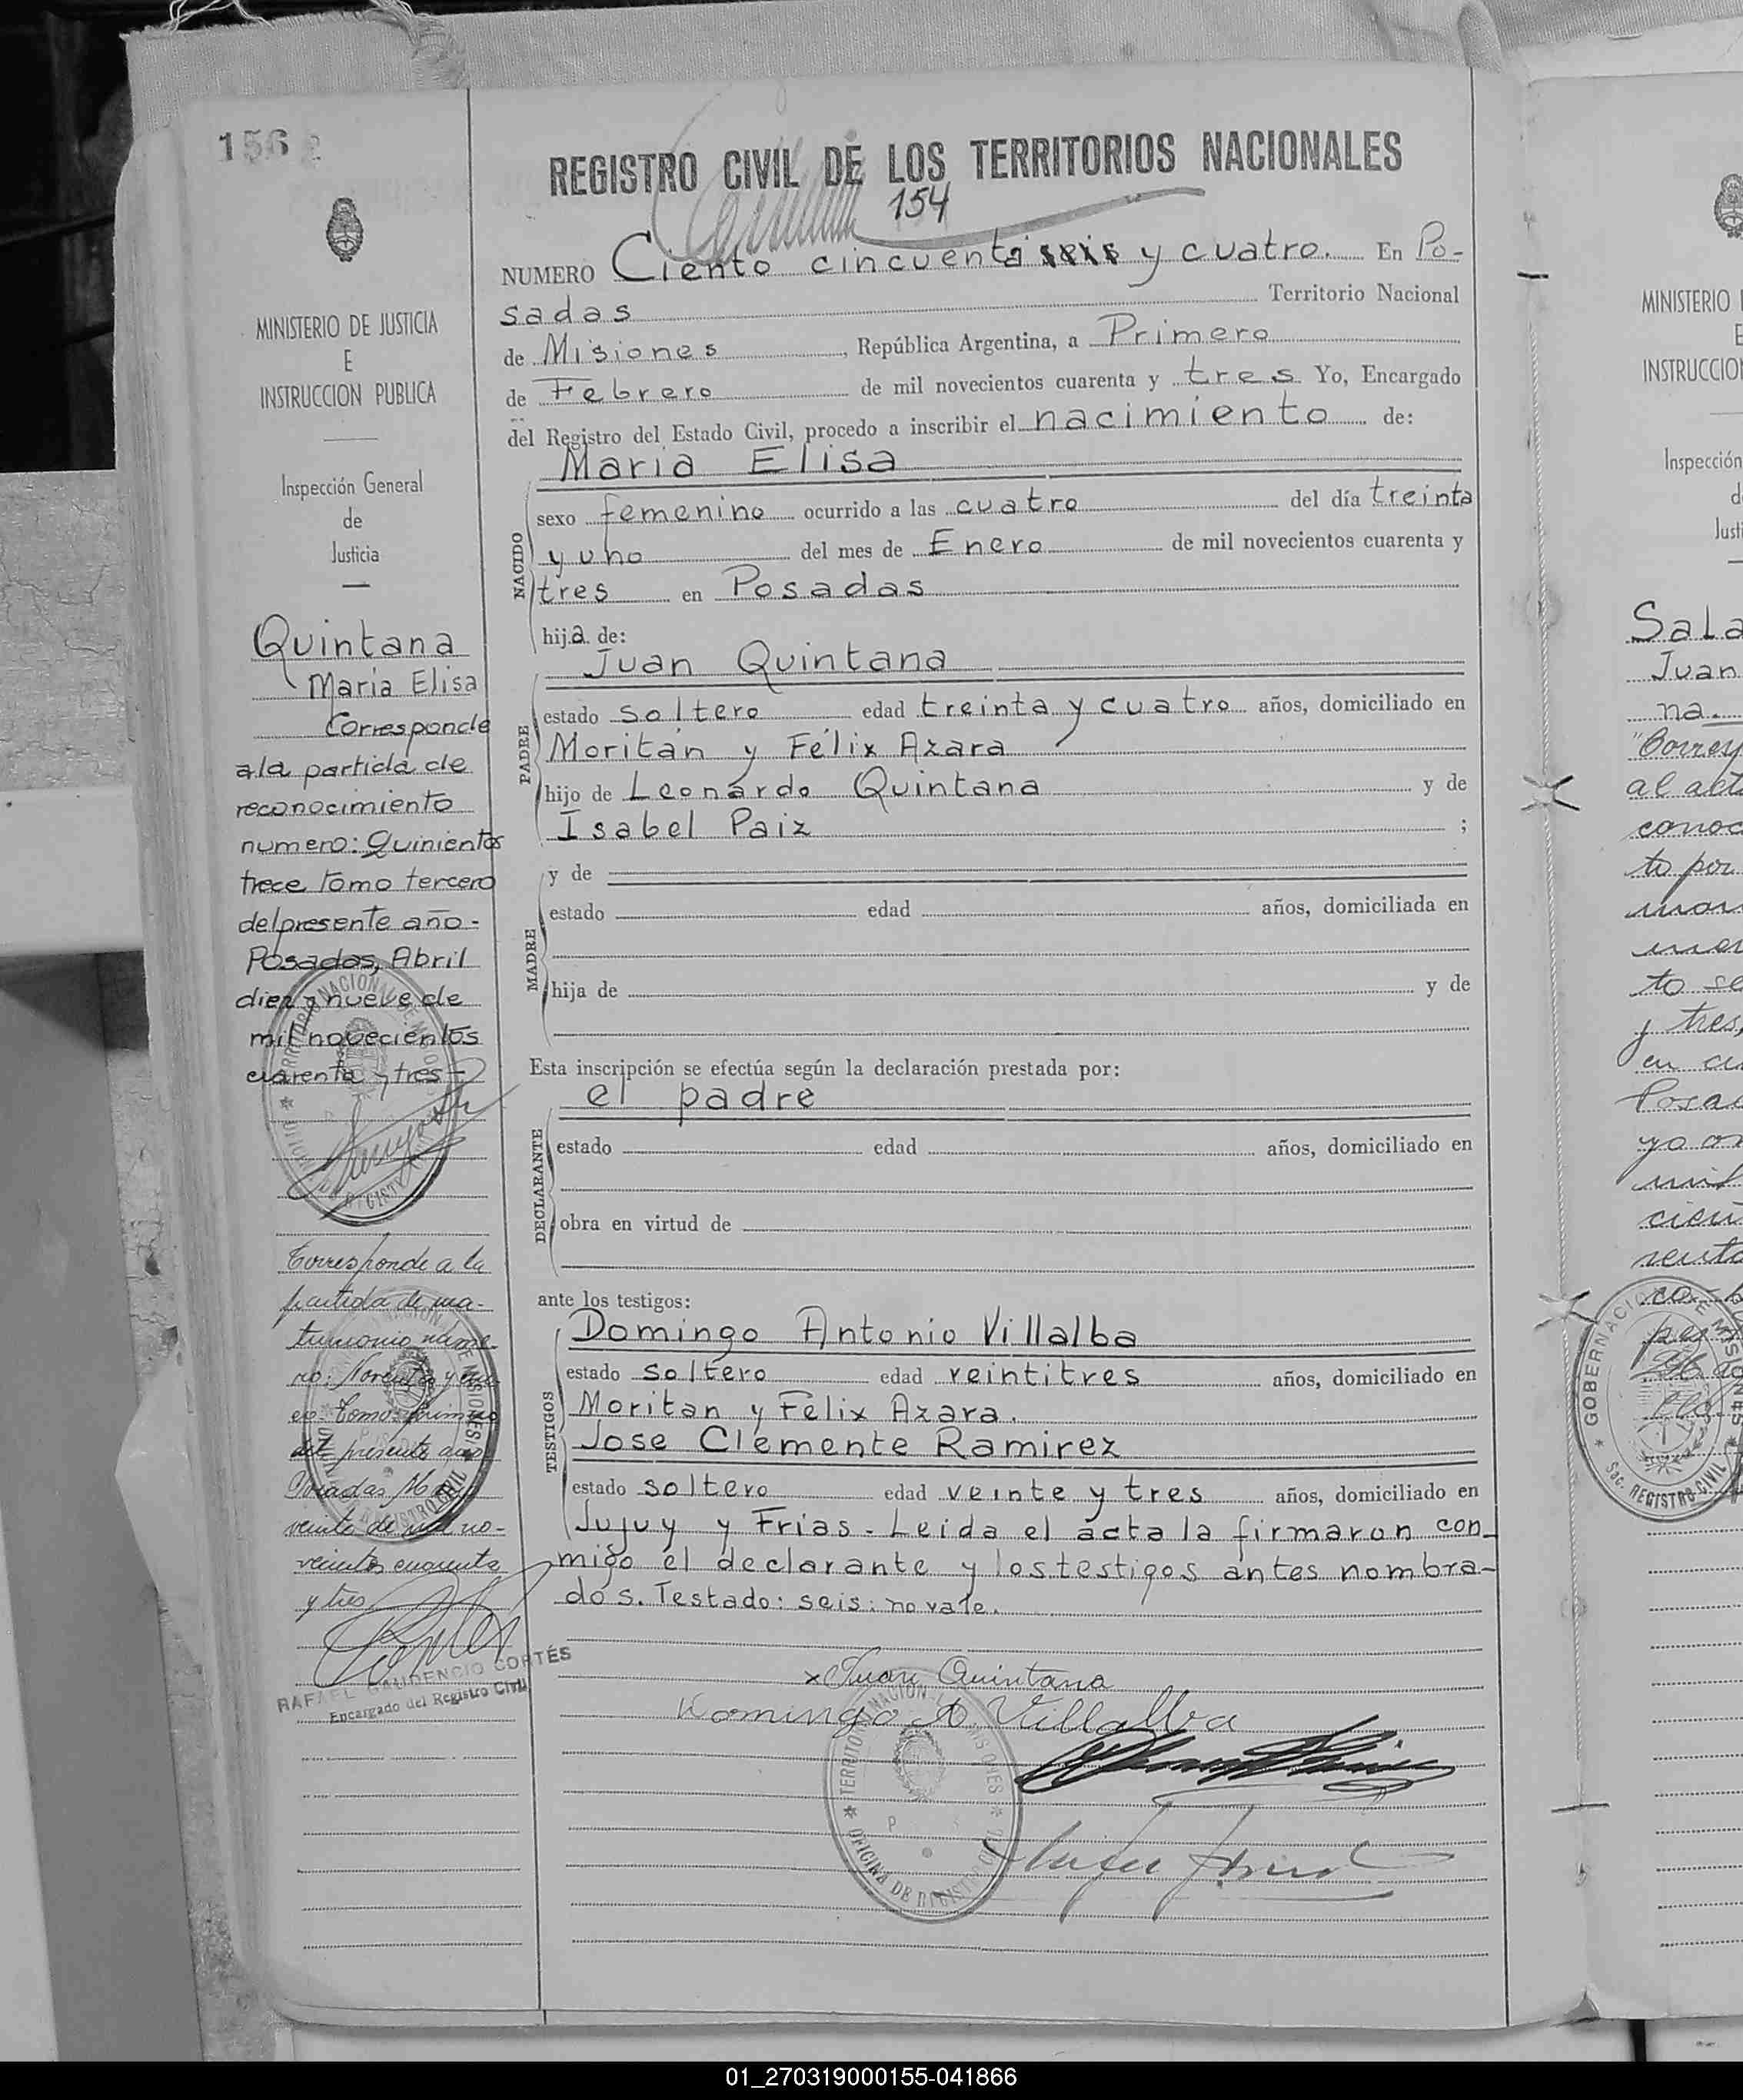 156
REGISTRO CIVIL DE LOS TERRITORIOS NACIONALES
154
NUMERO Ciento cincuenta seis y cuatro. En Po-
sadas Territorio Nacional
de Misiones, República Argentina, a Primero
de Febrero de mil novecientos cuarenta y tres Yo, Encargado
del Registro del Estado Civil, procedo a inscribir el nacimiento de:
Maria Elisa
NACIDO
sexo femenino ocurrido a las cuatro del día treinta
y uno del mes de Enero de mil novecientos cuarenta y
tres en Posadas
hija de:
Juan Quintana
PADRE
estado soltero edad treinta y cuatro años, domiciliado en
Moritán y Félix Azara
hijo de Leonardo Quintana y de
Isabel Paiz ;
MADRE
y de
estado edad años, domiciliada en
hija de y de
Esta inscripción se efectúa según la declaración prestada por:
el padre
DECLARANTE
estado edad años, domiciliado en
obra en virtud de
ante los testigos:
TESTIGOS
Domingo Antonio Villalba
estado soltero edad veintitres años, domiciliado en
Moritan y Félix Azara.
Jose Clemente Ramirez
estado soltero edad veinte y tres años, domiciliado en
Jujuy y Frias. Leida el acta la firmaron con-
migo el declarante y los testigos antes nombra-
dos. Testado: seis: no vale.
Juan Quintana
Domingo A. Villalba
TERRITORIO NACIONAL DE MISIONES
OFICINA DE REGISTRO CIVIL
MINISTERIO DE JUSTICIA
E
INSTRUCCION PUBLICA
Inspección General
de
Justicia
Quintana
Maria Elisa
Corresponde
a la partida de
reconocimiento
numero: Quinientos
trece tomo tercero
del presente año-
Posadas, Abril
diez y nueve de
mil novecientos
cuarenta y tres-
Corresponde a la
partida de ma-
trimonio nume-
ro: Noventa y
tomo: primero
del presente año
Posadas
veinte de mil no-
vecientos cuarenta
y tres
RAFAEL GAUDENCIO CORTÉS
Encargado del Registro Civil
MINISTERIO
INSTRUCCION
Inspección
Sala
Juan
na.
"Corres
al act
conoc
to por
to se
y tres,
en
Posa
ya
mil
GOBERNACION DE MISIONES
Sec. REGISTRO CIVIL
01_270319000155-041866